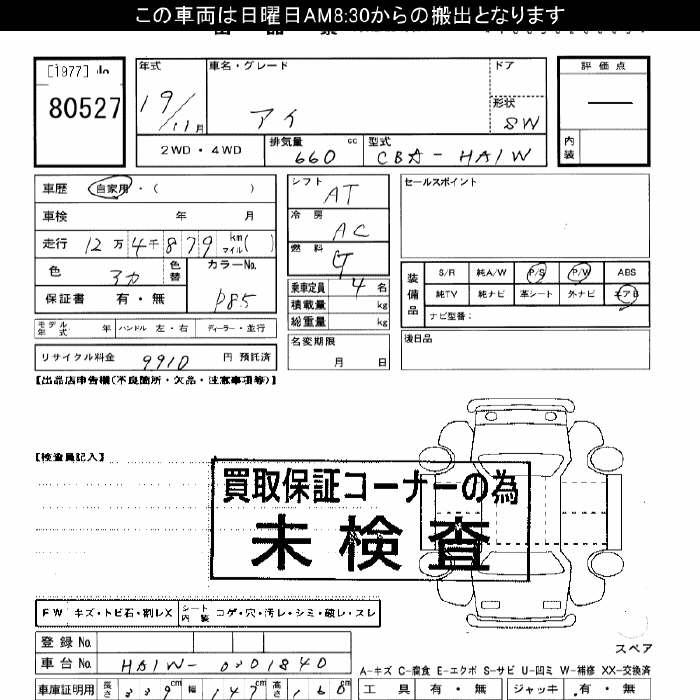 この車両は日曜日AM8:30からの搬出となります
[1977]
80527
年式 車名・グレード ドア
19/11月 アイ 形状 SW
2WD・4WD 排気量 660 cc 型式 CBA-HA1W
評価点
―
内装
車歴 自家用・( )
車検 年 月
走行 12万4千879 km マイル( )
色 アカ 色替 カラーNo. P85
保証書 有・無
モデル年式 年 ハンドル 左・右 ディーラー・並行
リサイクル料金 9910 円 預託済
シフト AT
冷房 AC
燃料 G
乗車定員 4 名
積載量 kg
総重量 kg
名変期限
月 日
セールスポイント
装備品 S/R 純A/W P/S P/W ABS
純TV 純ナビ 革シート 外ナビ エアB
ナビ型番:
後日品
【出品店申告欄(不良箇所・欠品・注意事項等)】
【検査員記入】
買取保証コーナーの為
未検査
FW キズ・トビ石・割レX シート内装 コゲ・穴・汚レ・シミ・破レ・スレ
登録No.
車台No. HA1W-0301840
車庫証明用 長さ 339cm 幅 147cm 高さ 160cm
スペア
A-キズ C-腐食 E-エクボ S-サビ U-凹ミ W-補修 XX-交換済
工具 有・無 ジャッキ 有・無